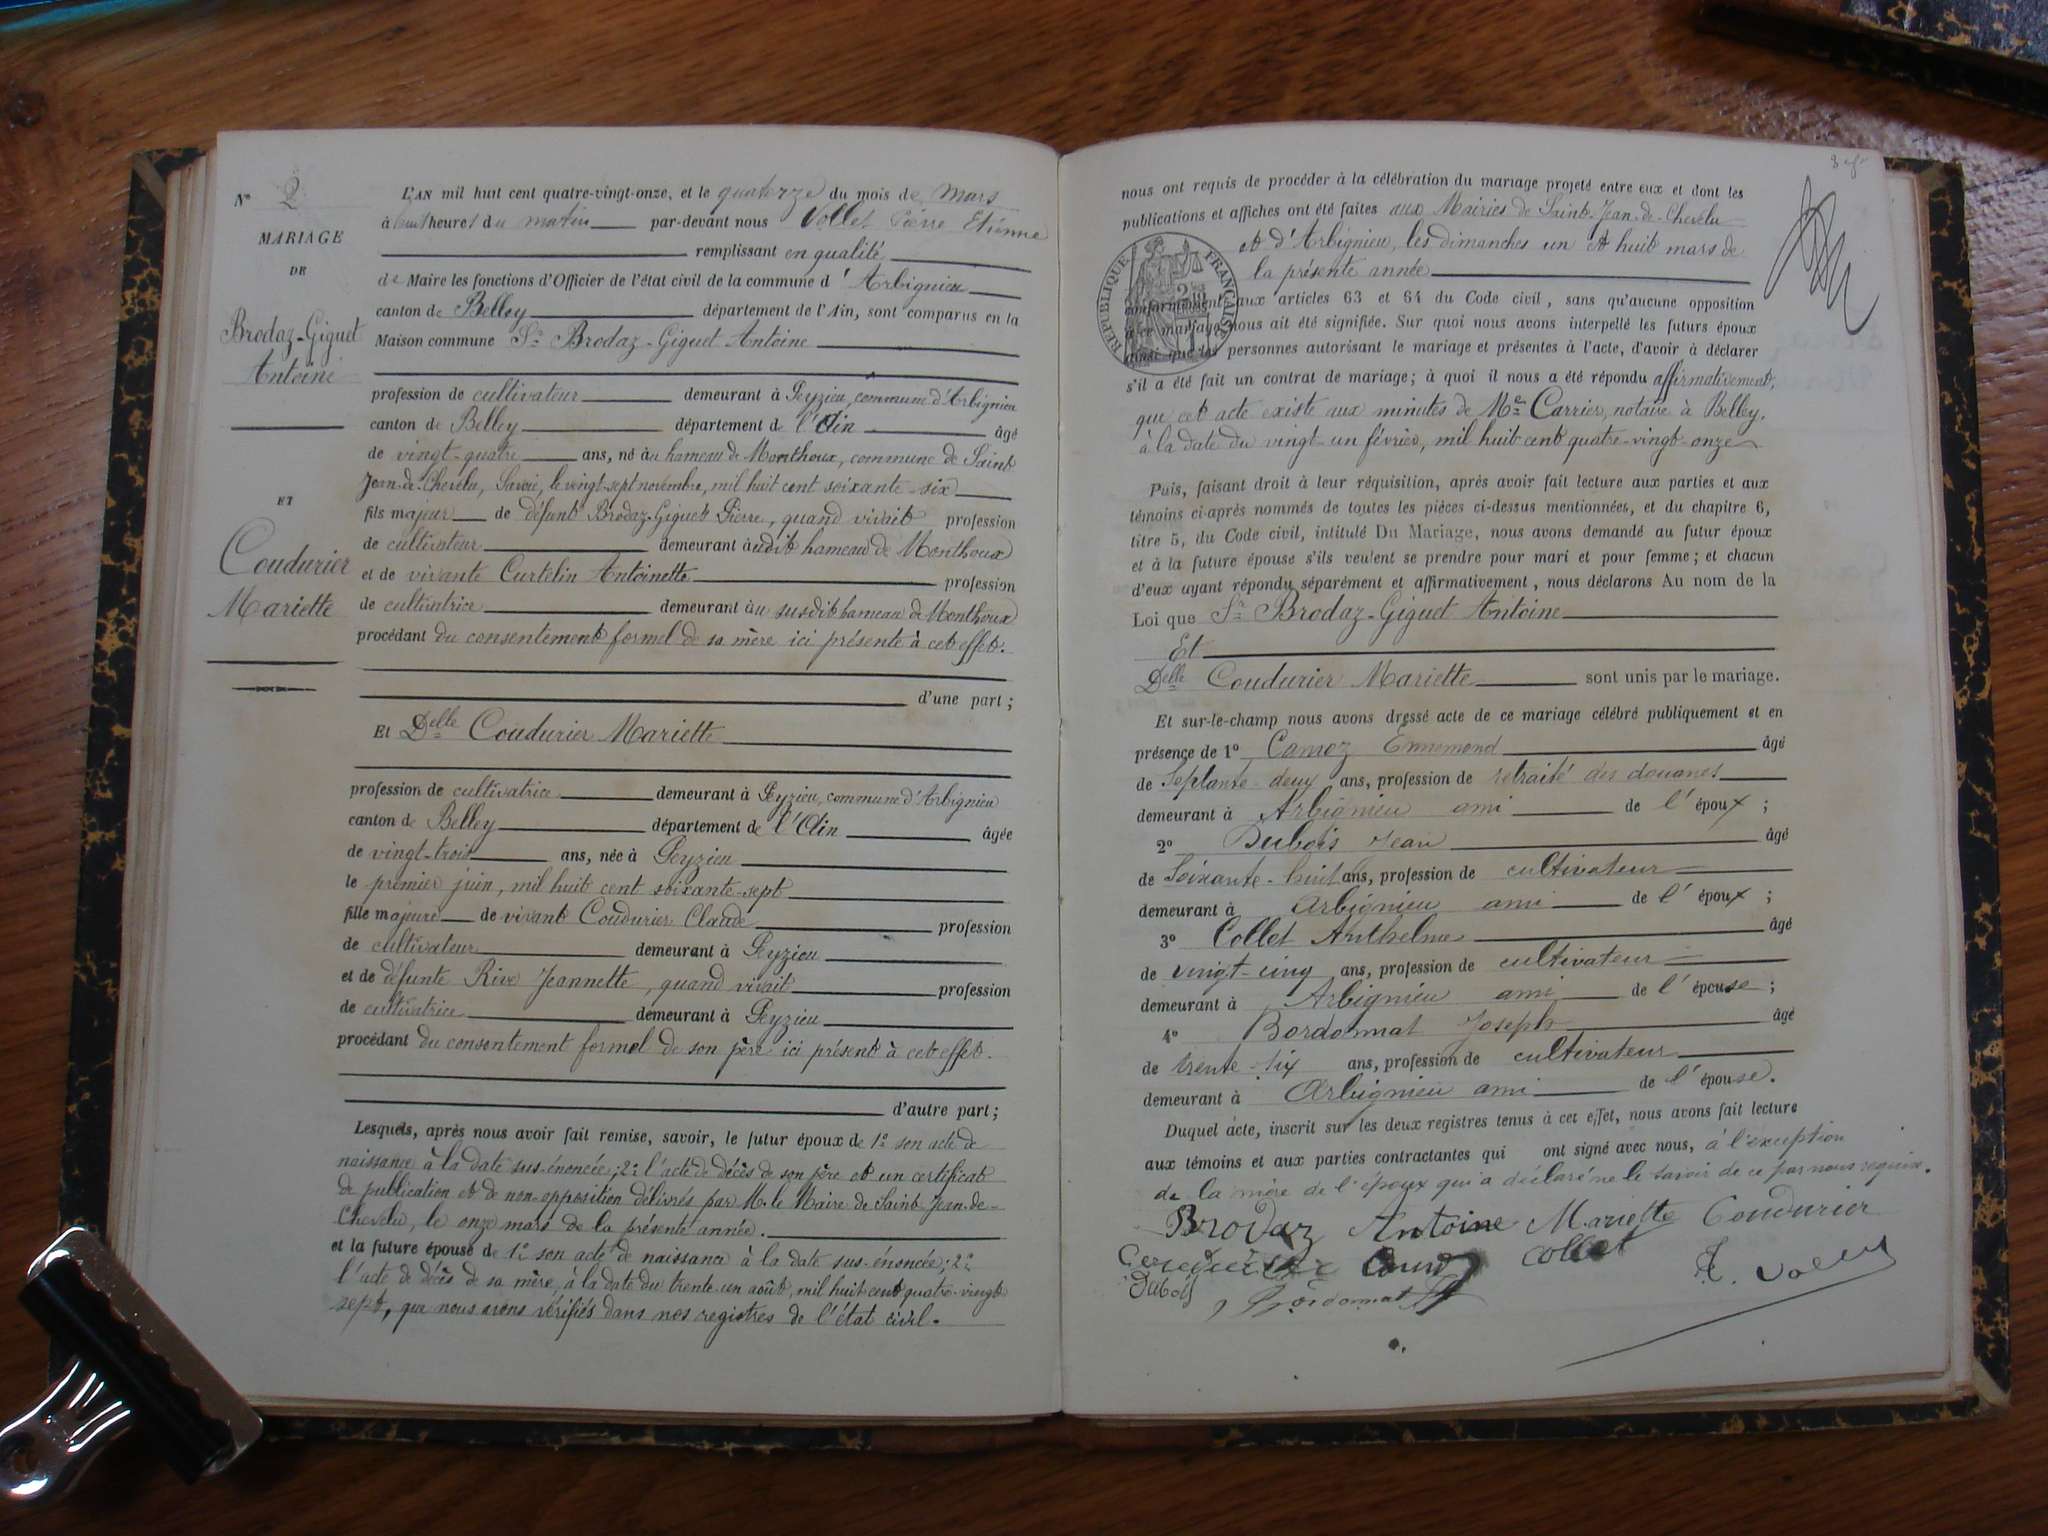 N° 2
MARIAGE
DE
Brodaz-Giguet
Antoine
ET
Coudurier
Mariette
L'AN mil huit cent quatre-vingt-onze, et le quatorze du mois de Mars
à huit heures du matin par-devant nous Vollet Pierre Etienne
remplissant en qualité
de Maire les fonctions d'Officier de l'état civil de la commune d'Arbignieu
canton de Belley département de l'Ain, sont comparus en la
Maison commune Sr Brodaz-Giguet Antoine
profession de cultivateur demeurant à Peyzieu, commune d'Arbignieu
canton de Belley département de l'Ain âgé
de vingt-quatre ans, né au hameau de Monthoux, commune de Saint
Jean-de-Chevelu, Savoie, le vingt-sept novembre, mil huit cent soixante-six
fils majeur de défunt Brodaz-Giguet Pierre, quand vivait profession
de cultivateur demeurant audit hameau de Monthoux
et de vivante Curtelin Antoinette profession
de cultivatrice demeurant au susdit hameau de Monthoux
procédant du consentement formel de sa mère ici présente à cet effet.
d'une part ;
Et Delle Coudurier Mariette
profession de cultivatrice demeurant à Peyzieu, commune d'Arbignieu
canton de Belley département de l'Ain âgée
de vingt-trois ans, née à Peyzieu
le premier juin, mil huit cent soixante-sept
fille majeure de vivant Coudurier Claude profession
de cultivateur demeurant à Peyzieu
et de défunte Rive Jeannette, quand vivait profession
de cultivatrice demeurant à Peyzieu
procédant du consentement formel de son père ici présent à cet effet.
d'autre part ;
Lesquels, après nous avoir fait remise, savoir, le futur époux de 1° son acte de
naissance à la date sus-énoncée ; 2° l'acte de décès de son père et un certificat
de publication et de non-opposition délivrés par M. le Maire de Saint-Jean-de-
Chevelu, le onze mars de la présente année.
et la future épouse de 1° son acte de naissance à la date sus-énoncée ; 2°
l'acte de décès de sa mère, à la date du trente-un août, mil huit cent quatre-vingt
sept, que nous avons vérifiés dans nos registres de l'état civil.
nous ont requis de procéder à la célébration du mariage projeté entre eux et dont les
publications et affiches ont été faites aux Mairies de Saint-Jean-de-Chevelu
et d'Arbignieu, les dimanches un et huit mars de
la présente année
RÉPUBLIQUE FRANÇAISE
conformément aux articles 63 et 64 du Code civil, sans qu'aucune opposition
à ce mariage nous ait été signifiée. Sur quoi nous avons interpellé les futurs époux
ainsi que les personnes autorisant le mariage et présentes à l'acte, d'avoir à déclarer
s'il a été fait un contrat de mariage ; à quoi il nous a été répondu affirmativement,
que cet acte existe aux minutes de Me Carrier, notaire à Belley.
à la date du vingt-un février, mil huit cent quatre-vingt-onze
Puis, faisant droit à leur réquisition, après avoir fait lecture aux parties et aux
témoins ci-après nommés de toutes les pièces ci-dessus mentionnées, et du chapitre 6,
titre 5, du Code civil, intitulé Du Mariage, nous avons demandé au futur époux
et à la future épouse s'ils veulent se prendre pour mari et pour femme ; et chacun
d'eux ayant répondu séparément et affirmativement, nous déclarons Au nom de la
Loi que Sr Brodaz-Giguet Antoine
Et
Delle Coudurier Mariette sont unis par le mariage.
Et sur-le-champ nous avons dressé acte de ce mariage célébré publiquement et en
présence de 1° Camoz Ennemond âgé
de Septante-deux ans, profession de retraité des douanes
demeurant à Arbignieu ami de l'époux ;
2° Dubois Jean âgé
de Soixante-huit ans, profession de cultivateur
demeurant à Arbignieu ami de l'époux ;
3° Collet Anthelme âgé
de vingt-cinq ans, profession de cultivateur
demeurant à Arbignieu ami de l'épouse ;
4° Bordonnat Joseph âgé
de trente-six ans, profession de cultivateur
demeurant à Arbignieu ami de l'épouse.
Duquel acte, inscrit sur les deux registres tenus à cet effet, nous avons fait lecture
aux témoins et aux parties contractantes qui ont signé avec nous, à l'exception
de la mère de l'époux qui a déclaré ne le savoir de ce par nous requise.
Brodaz Antoine Mariette Coudurier
Collet
Dubois Bordonnat